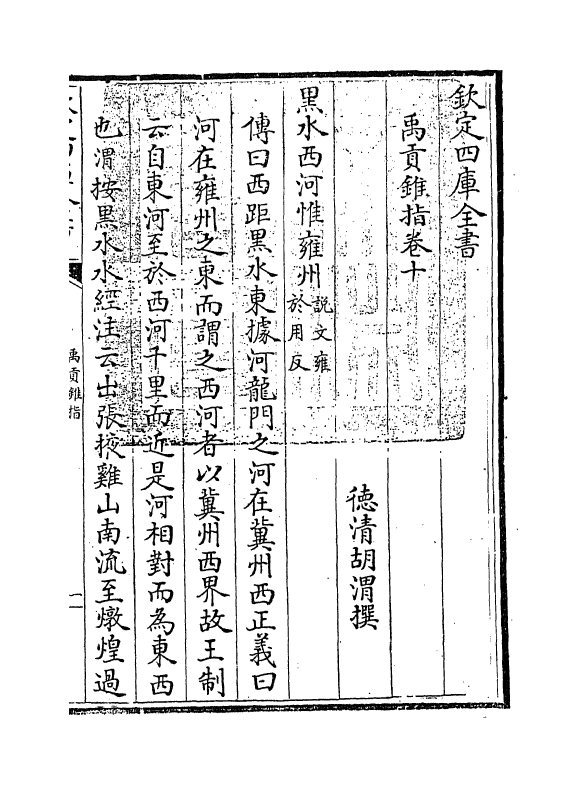 欽定四庫全書
禹貢錐指卷十
德清胡渭撰
黑水西河惟雍州說文雍於用反
傳曰西距黑水東據河龍門之河在冀州西正義曰
河在雍州之東而謂之西河者以冀州西界故王制
云自東河至於西河千里而近是河相對而為東西
也渭按黑水水經注云出張掖雞山南流至燉煌過
禹貢錐指
一